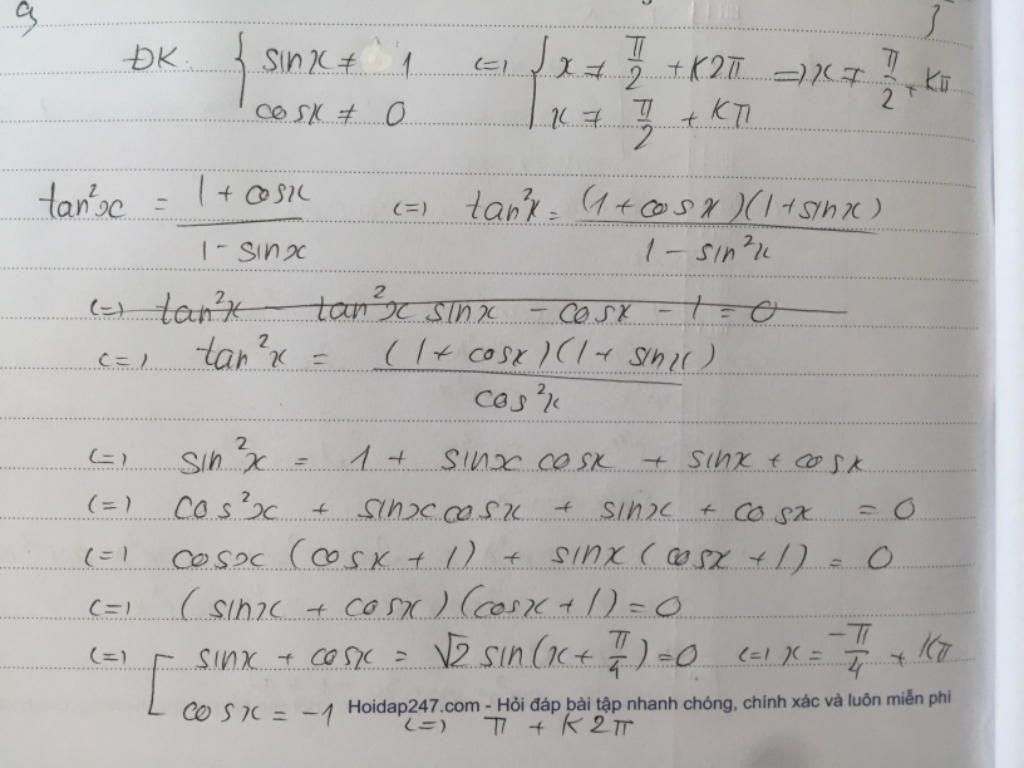 ĐK. { sinx ≠ 1 (=) { x ≠ π/2 + K2π => x ≠ π/2 + Kπ
cosx ≠ 0 x ≠ π/2 + Kπ
tan²x = (1 + cosx)/(1 - sinx) (=) tan²x = (1+cosx)(1+sinx)/(1 - sin²x)
(=) tan²x - tan²x sinx - cosx - 1 = 0
(=) tan²x = (1 + cosx)(1 + sinx)/cos²x
(=) sin²x = 1 + sinx cosx + sinx + cosx
(=) cos²x + sinxcosx + sinx + cosx = 0
(=) cosx (cosx + 1) + sinx (cosx + 1) = 0
(=) (sinx + cosx)(cosx + 1) = 0
(=) [ sinx + cosx = √2 sin(x + π/4) = 0 (=) x = -π/4 + Kπ
cosx = -1 (=) π + K2π
Hoidap247.com - Hỏi đáp bài tập nhanh chóng, chính xác và luôn miễn phí